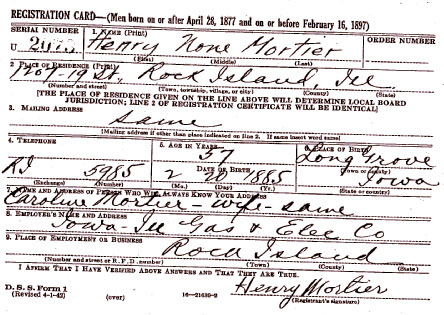 REGISTRATION CARD—(Men born on or after April 28, 1877 and on or before February 16, 1897)
SERIAL NUMBER 1. NAME (Print) ORDER NUMBER
U Henry None Mortier
(First) (Middle) (Last)
2. PLACE OF RESIDENCE (Print)
19 St, Rock Island Ill
(Number and street) (Town, township, village, or city) (County) (State)
[THE PLACE OF RESIDENCE GIVEN ON THE LINE ABOVE WILL DETERMINE LOCAL BOARD
JURISDICTION; LINE 2 OF REGISTRATION CERTIFICATE WILL BE IDENTICAL]
3. MAILING ADDRESS
same
[Mailing address if other than place indicated on line 2. If same insert word same]
4. TELEPHONE 5. AGE IN YEARS 6. PLACE OF BIRTH
57 Long Grove
DATE OF BIRTH (Town or county)
R.I 5985 2 20 1885 Iowa
(Exchange) (Number) (Mo.) (Day) (Yr.) (State or country)
7. NAME AND ADDRESS OF PERSON WHO WILL ALWAYS KNOW YOUR ADDRESS
Caroline Mortier wife - same
8. EMPLOYER'S NAME AND ADDRESS
Iowa-Ill Gas & Elec Co
9. PLACE OF EMPLOYMENT OR BUSINESS
Rock Island
(Number and street or R. F. D. number) (Town) (County) (State)
I AFFIRM THAT I HAVE VERIFIED ABOVE ANSWERS AND THAT THEY ARE TRUE.
D. S. S. Form 1 Henry Mortier
(Revised 4-1-42) (over) 16—21630-2 (Registrant's signature)